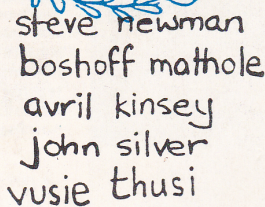 steve newman
boshoff mathole
avril kinsey
john silver
vusie thusi